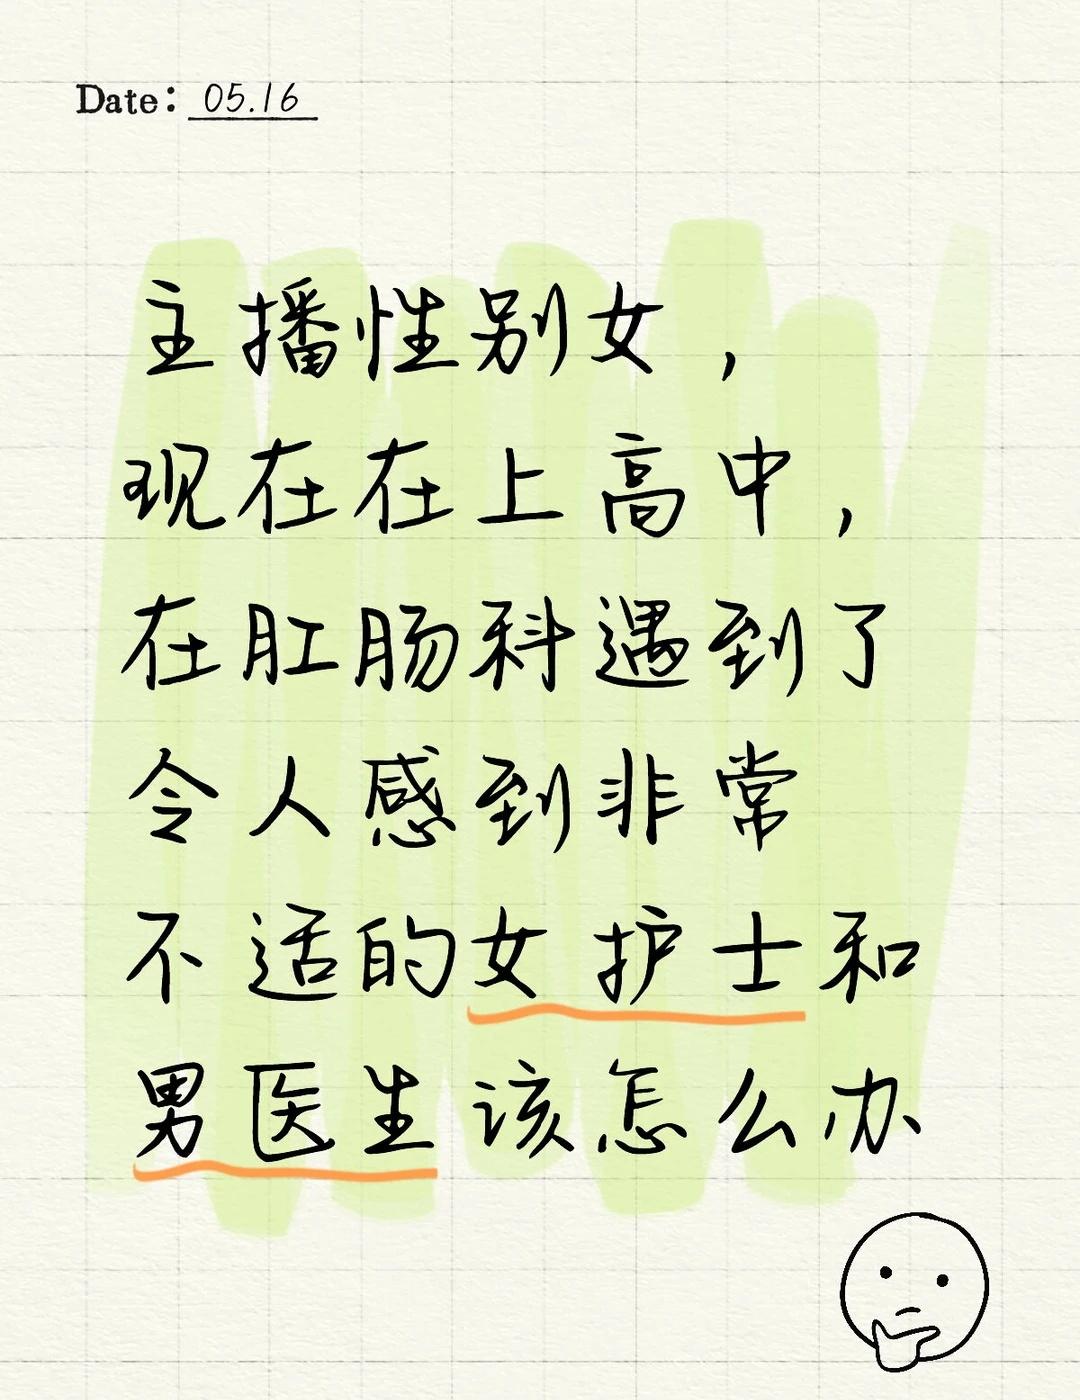 Date: 05.16
主播性别女，
现在在上高中，
在肛肠科遇到了
令人感到非常
不适的女护士和
男医生该怎么办